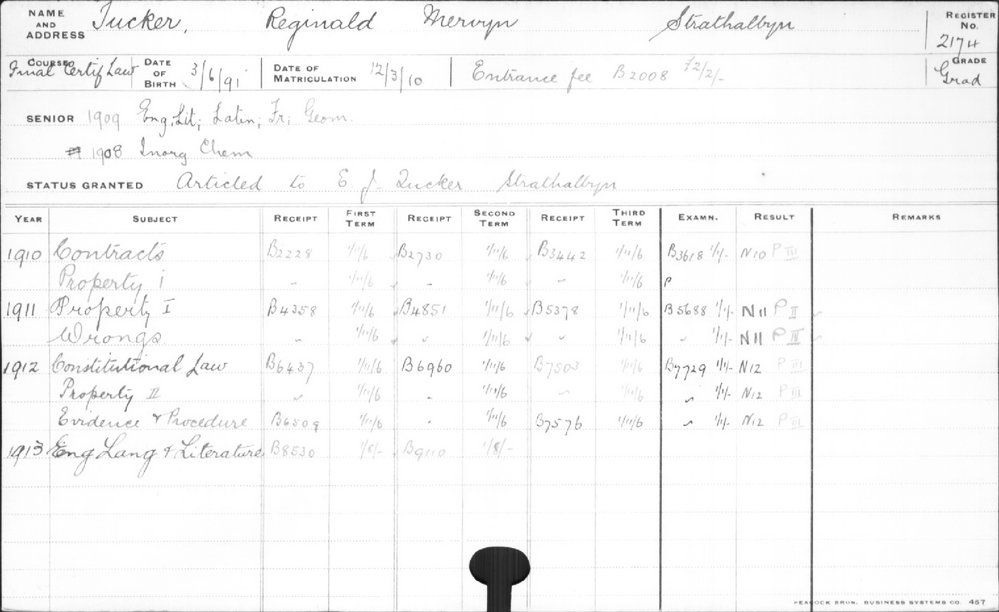 NAME AND ADDRESS Tucker, Reginald Mervyn Strathalbyn REGISTER No. 2174
COURSE Final Certif Law DATE OF BIRTH 3/6/91 DATE OF MATRICULATION 12/3/10 Entrance fee B2008 £2/2/- GRADE Grad
SENIOR 1909 Eng. Lit; Latin; Fr; Geom.
1908 Inorg Chem
STATUS GRANTED Articled to E J. Tucker Strathalbyn
YEAR SUBJECT RECEIPT FIRST TERM RECEIPT SECOND TERM RECEIPT THIRD TERM EXAMN. RESULT REMARKS
1910 Contracts B2228 1/11/6 B2730 1/11/6 B3442 1/11/6 B3618 1/1/- N10 P III
Property i " 1/11/6 " 1/11/6 " 1/11/6
1911 Property I B4358 1/11/6 B4851 1/11/6 B5378 1/11/6 B5688 1/1/- N11 P II
Wrongs " 1/11/6 " 1/11/6 " 1/11/6 " 1/1/- N11 P III
1912 Constitutional Law B6437 1/11/6 B6960 1/11/6 B7503 1/11/6 B7729 1/1/- N12 P III
Property II " 1/11/6 " 1/11/6 " 1/11/6 " 1/1/- N12 P III
Evidence & Procedure B6509 1/11/6 " 1/11/6 B7576 1/11/6 " 1/1/- N12 P III
1913 Eng Lang & Literature B8530 1/8/- B9110 1/8/-
PEACOCK BROS. BUSINESS SYSTEMS CO. 457